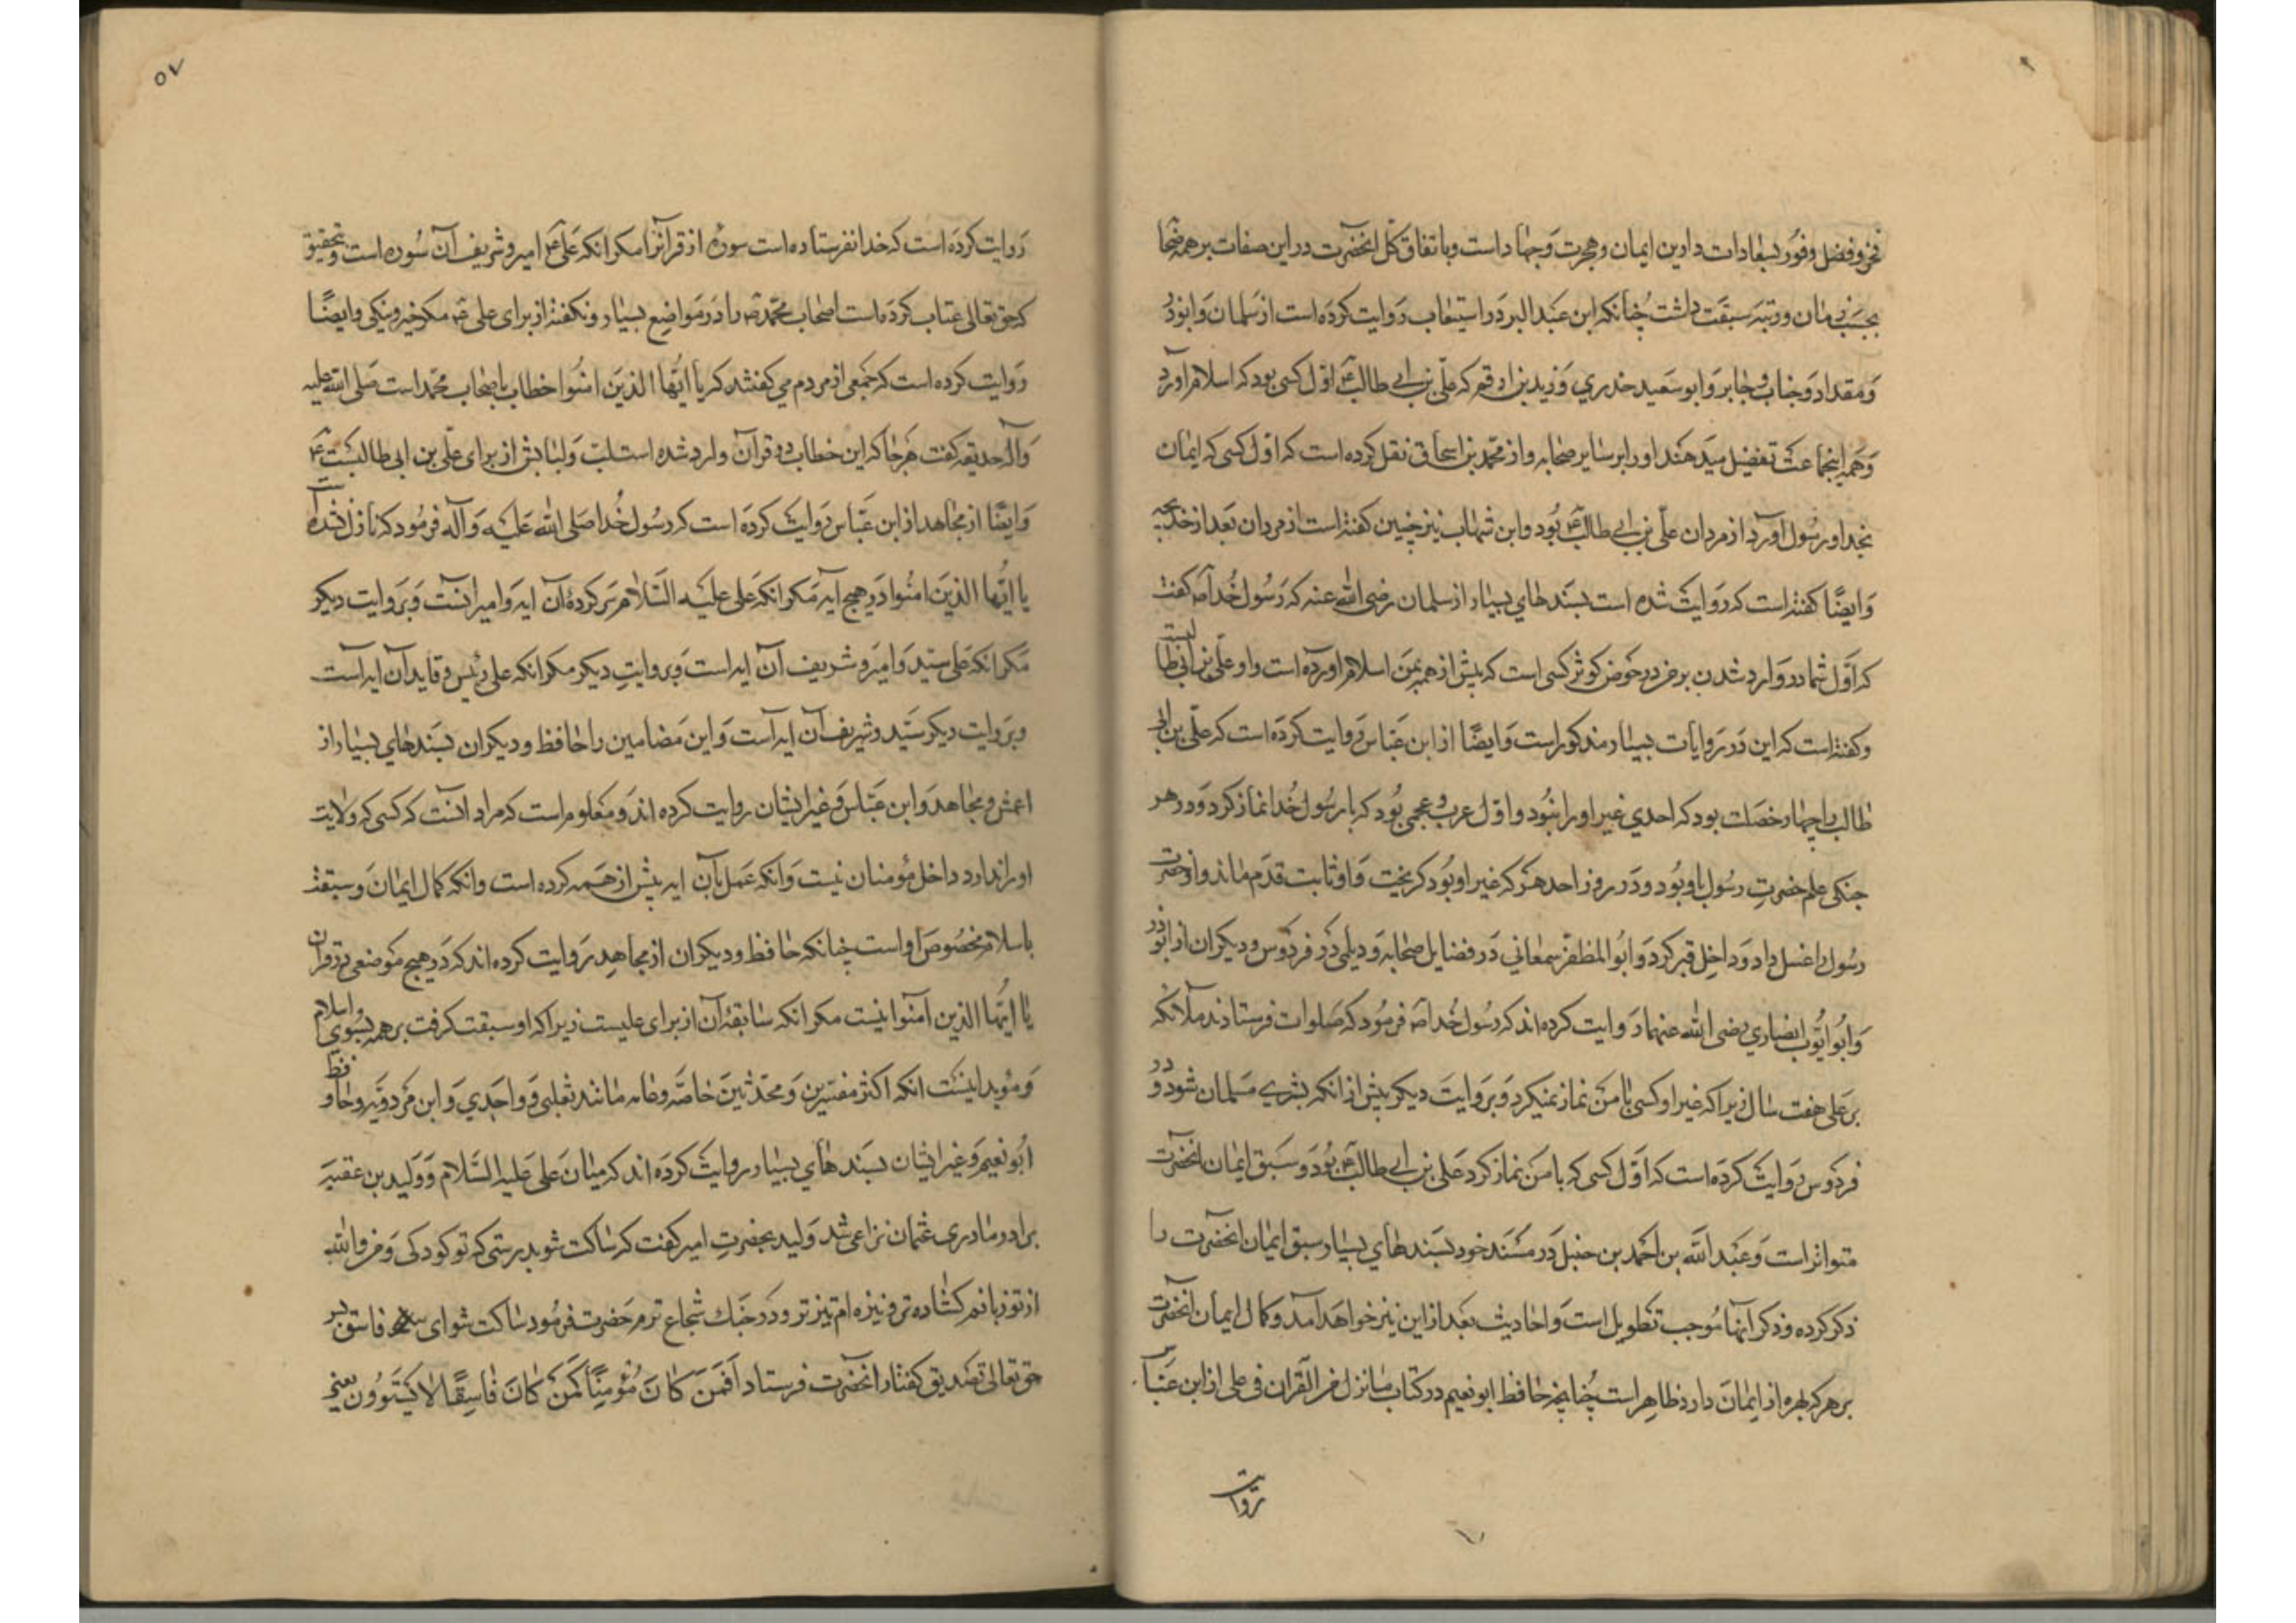 فخر و فضل و فوز بسعادات دارین ایمان و هجرت و جهاد است و باتفاق کل انحضرت در این صفات بر همه صحابه
بحسب زمان و رتبه سبقت داشت چنانکه ابن عبد البر در استیعاب روایت کرده است از سلمان و ابوذر
و مقداد و خباب و جابر و ابو سعید خدری و زید بن ارقم که علی بن ابی طالب ع اول کسی بود که اسلام اورد
و همه اینجماعت تفضیل میدهند او را بر سایر صحابه و از محمد بن اسحاق نقل کرده است که اول کسی که ایمان
بخدا و رسول آورد از مردان علی بن ابی طالب ع بود و ابن شهاب نیز چنین کفته است از مردان بعد از خدیجه
و ایضًا کفته است که روایت شده است بسندهای بسیار از سلمان رضی الله عنه که رسول خدا ص کفت
که اول شما در وارد شدن بر من در حوض کوثر کسی است که پیش از همه بمن اسلام اورده است و او علی بن ابی طالبست
و کفته است که این در روایات بسیار مذکور است و ایضًا از ابن عباس روایت کرده است که علی بن ابی
طالب را چهار خصلت بود که احدی غیر او را نبود و اول عرب و عجمی بود که با رسول خدا نماز کرد و در هر
جنکی علم حضرت رسول با او بود و در روز احد هر که غیر او بود کریخت و او ثابت قدم ماند و او حضرت
رسول را غسل داد و داخل قبر کرد و ابو المظفر سمعانی در فضایل صحابه و دیلمی در فردوس و دیکران از ابوذر
و ابو ایوب انصاری رضی الله عنهما روایت کرده اند که رسول خدا ص فرمود که صلوات فرستادند ملائکه
بر علی هفت سال زیرا که غیر او کسی با من نماز نمیکرد و بروایت دیکر پیش از انکه بشری مسلمان شود و در
فردوس روایت کرده است که اول کسی که با من نماز کرد علی بن ابی طالب ع بود و سبق ایمان انحضرت
متواتر است و عبد الله بن احمد بن حنبل در مسند خود بسندهای بسیار سبق ایمان انحضرت را
ذکر کرده و ذکر آنها موجب تطویل است و احادیث بعد از این نیز خواهد آمد و کمال ایمان انحضرت
بر هر که بهره از ایمان دارد ظاهر است چنانچه حافظ ابو نعیم در کتاب ما نزل من القرآن فی علی از ابن عباس
روایت
٥٧
روایت کرده است که خدا نفرستاده است سوره از قرآن را مکر انکه علی ع امیر و شریف آن سوره است و بتحقیق
که حق تعالی عتاب کرده است اصحاب محمد ص را در مواضع بسیار و نکفته از برای علی ع مکر خیر و نیکی و ایضًا
روایت کرده است که جمعی از مردم می کفتند که یا ایها الذین امنوا خطاب باصحاب محمد است صلی الله علیه
و آله حذیفه کفت هر جا که این خطاب در قرآن وارد شده است لب و لبابش از برای علی بن ابی طالبست ع
و ایضًا از مجاهد از ابن عباس روایت کرده است که رسول خدا صلی الله علیه و آله فرمود که نازل نشده است
یا ایها الذین امنوا در هیچ آیه مکر انکه علی علیه السلام سرکرده آن ایه و امیر انست و بروایت دیکر
مکر انکه علی سید و امیر و شریف آن ایه است و بروایت دیکر مکر انکه علی رئیس و قاید آن ایه است
و بروایت دیکر سید و شریف آن ایه است و این مضامین را حافظ و دیکران بسندهای بسیار از
اعمش و مجاهد و ابن عباس و غیر ایشان روایت کرده اند و معلوم است که مراد انست که کسی که ولایت
او را ندارد داخل مؤمنان نیست و انکه عمل بآن ایه پیش از همه کرده است و انکه کمال ایمان و سبقت
باسلام مخصوص او است چنانکه حافظ و دیکران از مجاهد روایت کرده اند که در هیچ موضعی در قرآن
یا ایها الذین آمنوا نیست مکر انکه سابقه آن از برای علیست زیرا که او سبقت کرفت بر همه بسوی اسلام
و مؤید اینست انکه اکثر مفسرین و محدثین خاصه و عامه مانند ثعلبی و واحدی و ابن مردویه و حافظ
ابو نعیم و غیر ایشان بسندهای بسیار روایت کرده اند که میان علی علیه السلام و ولید بن عقبه
برادر مادری عثمان نزاعی شد ولید بحضرت امیر کفت که ساکت شو بدرستی که تو کودکی و من والله
از تو زبانم کشاده تر و نیزه ام تیزتر و در جنک شجاع ترم حضرت فرمود ساکت شو ای فاسق پس
حق تعالی تصدیق کفتار انحضرت فرستاد أفمن کان مؤمنًا کمن کان فاسقًا لا یستوون یعنی